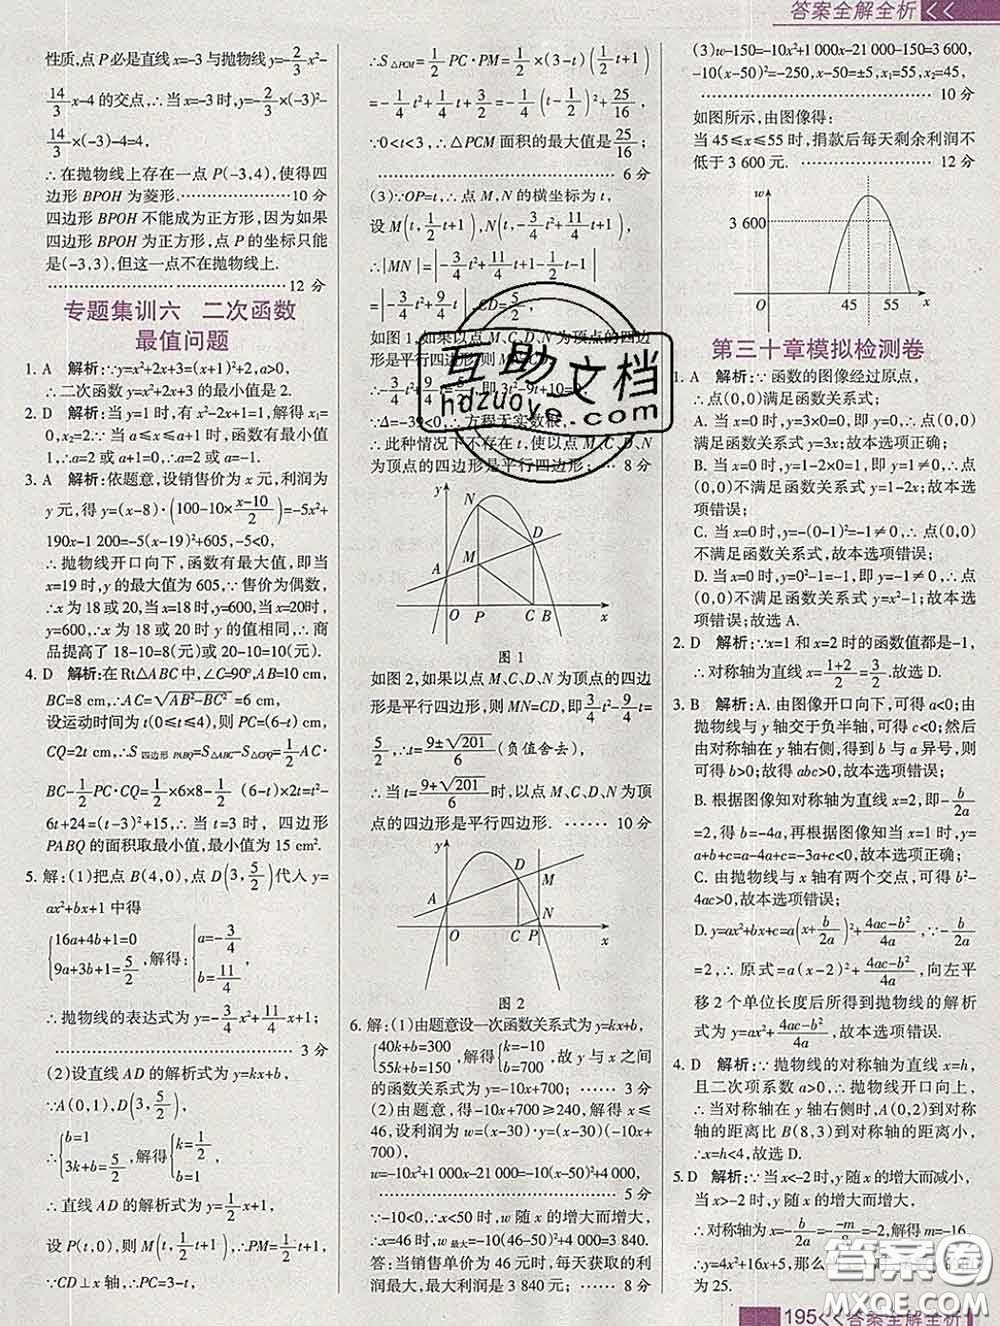 答案全解全析 <<
性质,点 P 必是直线 x=-3 与抛物线 y=-2/3x²-
14/3x-4 的交点,∴当 x=-3 时,y=-2/3×(-3)²-
14/3×(-3)-4=4,
∴在抛物线上存在一点 P(-3,4),使得四
边形 BPOH 为菱形. ……………… 10 分
四边形 BPOH 不能成为正方形,因为如果
四边形 BPOH 为正方形,点 P 的坐标只能
是(-3,3),但这一点不在抛物线上.
……………………………………… 12 分
专题集训六 二次函数
最值问题
1. A 解析:∵y=x²+2x+3=(x+1)²+2,a>0,
∴二次函数 y=x²+2x+3 的最小值是 2.
2. D 解析:当 y=1 时,有 x²-2x+1=1,解得 x₁=
0,x₂=2.∵当 a≤x≤a+1 时,函数有最小值
1,∴a=2 或 a+1=0,∴a=2 或 a=-1.
3. A 解析:依题意,设销售价为 x 元,利润为
y 元,得 y=(x-8)·(100-10×(x-10)/2)=-5x²+
190x-1 200=-5(x-19)²+605,-5<0,
∴抛物线开口向下,函数有最大值,即当
x=19 时,y 的最大值为 605,∵售价为偶数,
∴x 为 18 或 20,当 x=18 时,y=600,当 x=20时,
y=600,∴x 为 18 或 20 时 y 的值相同,∴商
品提高了 18-10=8(元)或 20-10=10(元).
4. D 解析:在Rt△ABC 中,∠C=90°,AB=10 cm,
BC=8 cm,∴AC=√(AB²-BC²)=6 cm.
设运动时间为 t(0≤t≤4),则 PC=(6-t) cm,
CQ=2t cm,∴S四边形PABQ=S△ABC-S△CPQ=1/2AC·
BC-1/2PC·CQ=1/2×6×8-1/2(6-t)×2t=t²-
6t+24=(t-3)²+15,∴当 t=3 时,四边形
PABQ 的面积取最小值,最小值为 15 cm².
5. 解:(1)把点 B(4,0),点 D(3,5/2)代入 y=
ax²+bx+1 中得
{16a+4b+1=0 9a+3b+1=5/2,解得:{a=-3/4 b=11/4
∴抛物线的表达式为 y=-3/4x²+11/4x+1;
……………………………………… 3 分
(2)设直线 AD 的解析式为 y=kx+b,
∵A(0,1),D(3,5/2),
∴{b=1 3k+b=5/2,解得{k=1/2 b=1,
∴直线 AD 的解析式为 y=1/2x+1,
设 P(t,0),则 M(t,1/2t+1),∴PM=1/2t+1,
∵CD⊥x 轴,∴PC=3-t,
∴S△PCM=1/2PC·PM=1/2×(3-t)(1/2t+1)
=-1/4t²+1/4t+3/2=-1/4(t-1/2)²+25/16,
∵0<t<3,∴△PCM 面积的最大值是25/16;
……………………………………… 6 分
(3)∵OP=t,∴点 M,N 的横坐标为 t,
设 M(t,1/2t+1),N(t,-3/4t²+11/4t+1),
∴|MN|=|-3/4t²+11/4t+1-1/2t-1|
=|-3/4t²+9/4t|,CD=5/2,
如图 1,如果以点 M、C、D、N 为顶点的四边
形是平行四边形,则 MN=CD,
即 3t²-9t+10=0,
∵Δ=-39<0,∴方程无实数根,
∴此种情况下不存在 t,使以点 M、C、D、N
为顶点的四边形是平行四边形; …… 8 分
y N D M A O P C B x
图 1
如图 2,如果以点 M、C、D、N 为顶点的四边
形是平行四边形,则 MN=CD,即3/4t²-9/4t=
5/2,∴t=(9±√201)/6(负值舍去),
∴当 t=(9+√201)/6时,以点 M、C、D、N 为顶
点的四边形是平行四边形. …… 10 分
y D M A B O C P N x
图 2
6. 解:(1)由题意设一次函数关系式为 y=kx+b,
{40k+b=300 55k+b=150,解得{k=-10 b=700,故 y 与 x 之间
的函数关系式为 y=-10x+700; …… 3 分
(2)由题意,得-10x+700≥240,解得 x≤
46,设利润为 w=(x-30)·y=(x-30)(-10x+
700),
w=-10x²+1 000x-21 000=-10(x-50)²+4 000,
……………………………………… 5 分
∵-10<0,∴x<50 时,w 随 x 的增大而增大,
∴x=46 时,w最大=-10(46-50)²+4 000=3 840.
答:当销售单价为 46 元时,每天获取的利
润最大,最大利润是 3 840 元; …… 8 分
(3)w-150=-10x²+1 000x-21 000-150=3 600,
-10(x-50)²=-250,x-50=±5,x₁=55,x₂=45,
……………………………………… 10 分
如图所示,由图像得:
当 45≤x≤55 时,捐款后每天剩余利润不
低于 3 600 元. ……………… 12 分
w 3 600 O 45 55 x
第三十章模拟检测卷
1. A 解析:∵函数的图像经过原点,
∴点(0,0)满足函数关系式.
A. 当 x=0 时,y=3×0=0,即 y=0,∴点(0,0)
满足函数关系式 y=3x;故本选项正确;
B. 当 x=0 时,y=1-2×0=1,即 y=1,∴点
(0,0)不满足函数关系式 y=1-2x;故本选
项错误;
C. 当 x=0 时,y=-(0-1)²=-1≠0,∴点(0,0)
不满足函数关系式,故本选项错误;
D. 当 x=0 时,y=0²-1=-1,即 y=-1≠0,∴点
(0,0)不满足函数关系式 y=x²-1;故本选
项错误;故选 A.
2. D 解析:∵x=1 和 x=2 时的函数值都是-1,
∴对称轴为直线 x=(1+2)/2=3/2.故选 D.
3. B 解析:A. 由图像开口向下,可得 a<0;由
抛物线与 y 轴交于负半轴,可得 c<0;然后
由对称轴在 y 轴右侧,得到 b 与 a 异号,则
可得 b>0;故得 abc>0,故本选项错误;
B. 根据图像知对称轴为直线 x=2,即-b/2a
=2,得 b=-4a,再根据图像知当 x=1 时,y=
a+b+c=a-4a+c=-3a+c>0,故本选项正确;
C. 由抛物线与 x 轴有两个交点,可得 b²-
4ac>0,故本选项错误;
D. y=ax²+bx+c=a(x+b/2a)²+(4ac-b²)/4a,∵-b/2a
=2,∴原式=a(x-2)²+(4ac-b²)/4a,向左平
移 2 个单位长度后所得到抛物线的解析
式为 y=ax²+(4ac-b²)/4a,故本选项错误.
4. D 解析:∵抛物线的对称轴为直线 x=h,
且二次项系数 a>0,∴抛物线开口向上,
∴当对称轴在 y 轴右侧时,A(0,2)到对称
轴的距离比 B(8,3)到对称轴的距离小,
∴x=h<4,故选 D.
5. D 解析:∵当 x<-2 时,y 随 x 的增大而减小,
当 x>-2 时,y 随 x 的增大而增大,
∴对称轴为 x=-b/2a=-(-m)/8=-2,解得 m=-16,
∴y=4x²+16x+5,那么
为 25.
互助文档
hdzuoye.com
答案圈
MXQE.COM
195<<答案全解全析